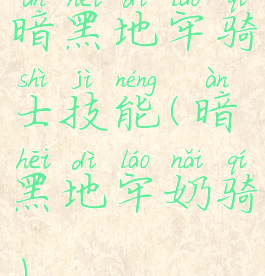 àn hēi dì láo qí
暗黑地牢骑
shì jì néng àn
士技能(暗
hēi dì láo nǎi qí
黑地牢奶骑
)